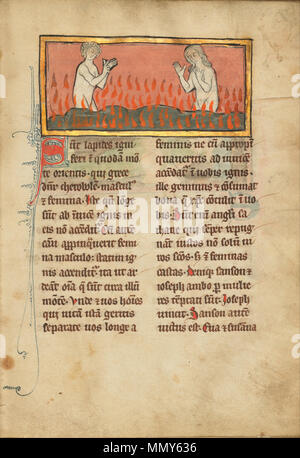 Sūt lapites igni
feri ī quodā mō
te orientis. qui grece
dnr̄ cherobole. mascul'
& femina. Iste qn̄ lōge
sūt ab īuicē ignis in
eis nō accēdit. Cū autē
casu appīnquerit femi
na masculo. statim ig
nis accenditr̄. ita ut ar
deāt oīa q̄ sūt circa illū
mōtē. Unde & uos hoīes
qui uitā istā geritis
separate uos longe a
feminis ne cū appropī
quaueritis ad iuuicē
accēdatr̄ ī uobis ignis.
ille geminus & cōsumat
bona q̄ xp̄c cōtulit ī uo
bis. Sūt eni angl'i sa
thane qui semper repug
nant iustos nō solū ui
ros scōs. s; & feminas
castas. Deniq; sanson &
ioseph ambo. p̄ mulie
res tēptati sūt. Joseph
uincit. Sanson aute
uictus est. Eua & susāna
alamy
Image ID: MMY636
www.alamy.com